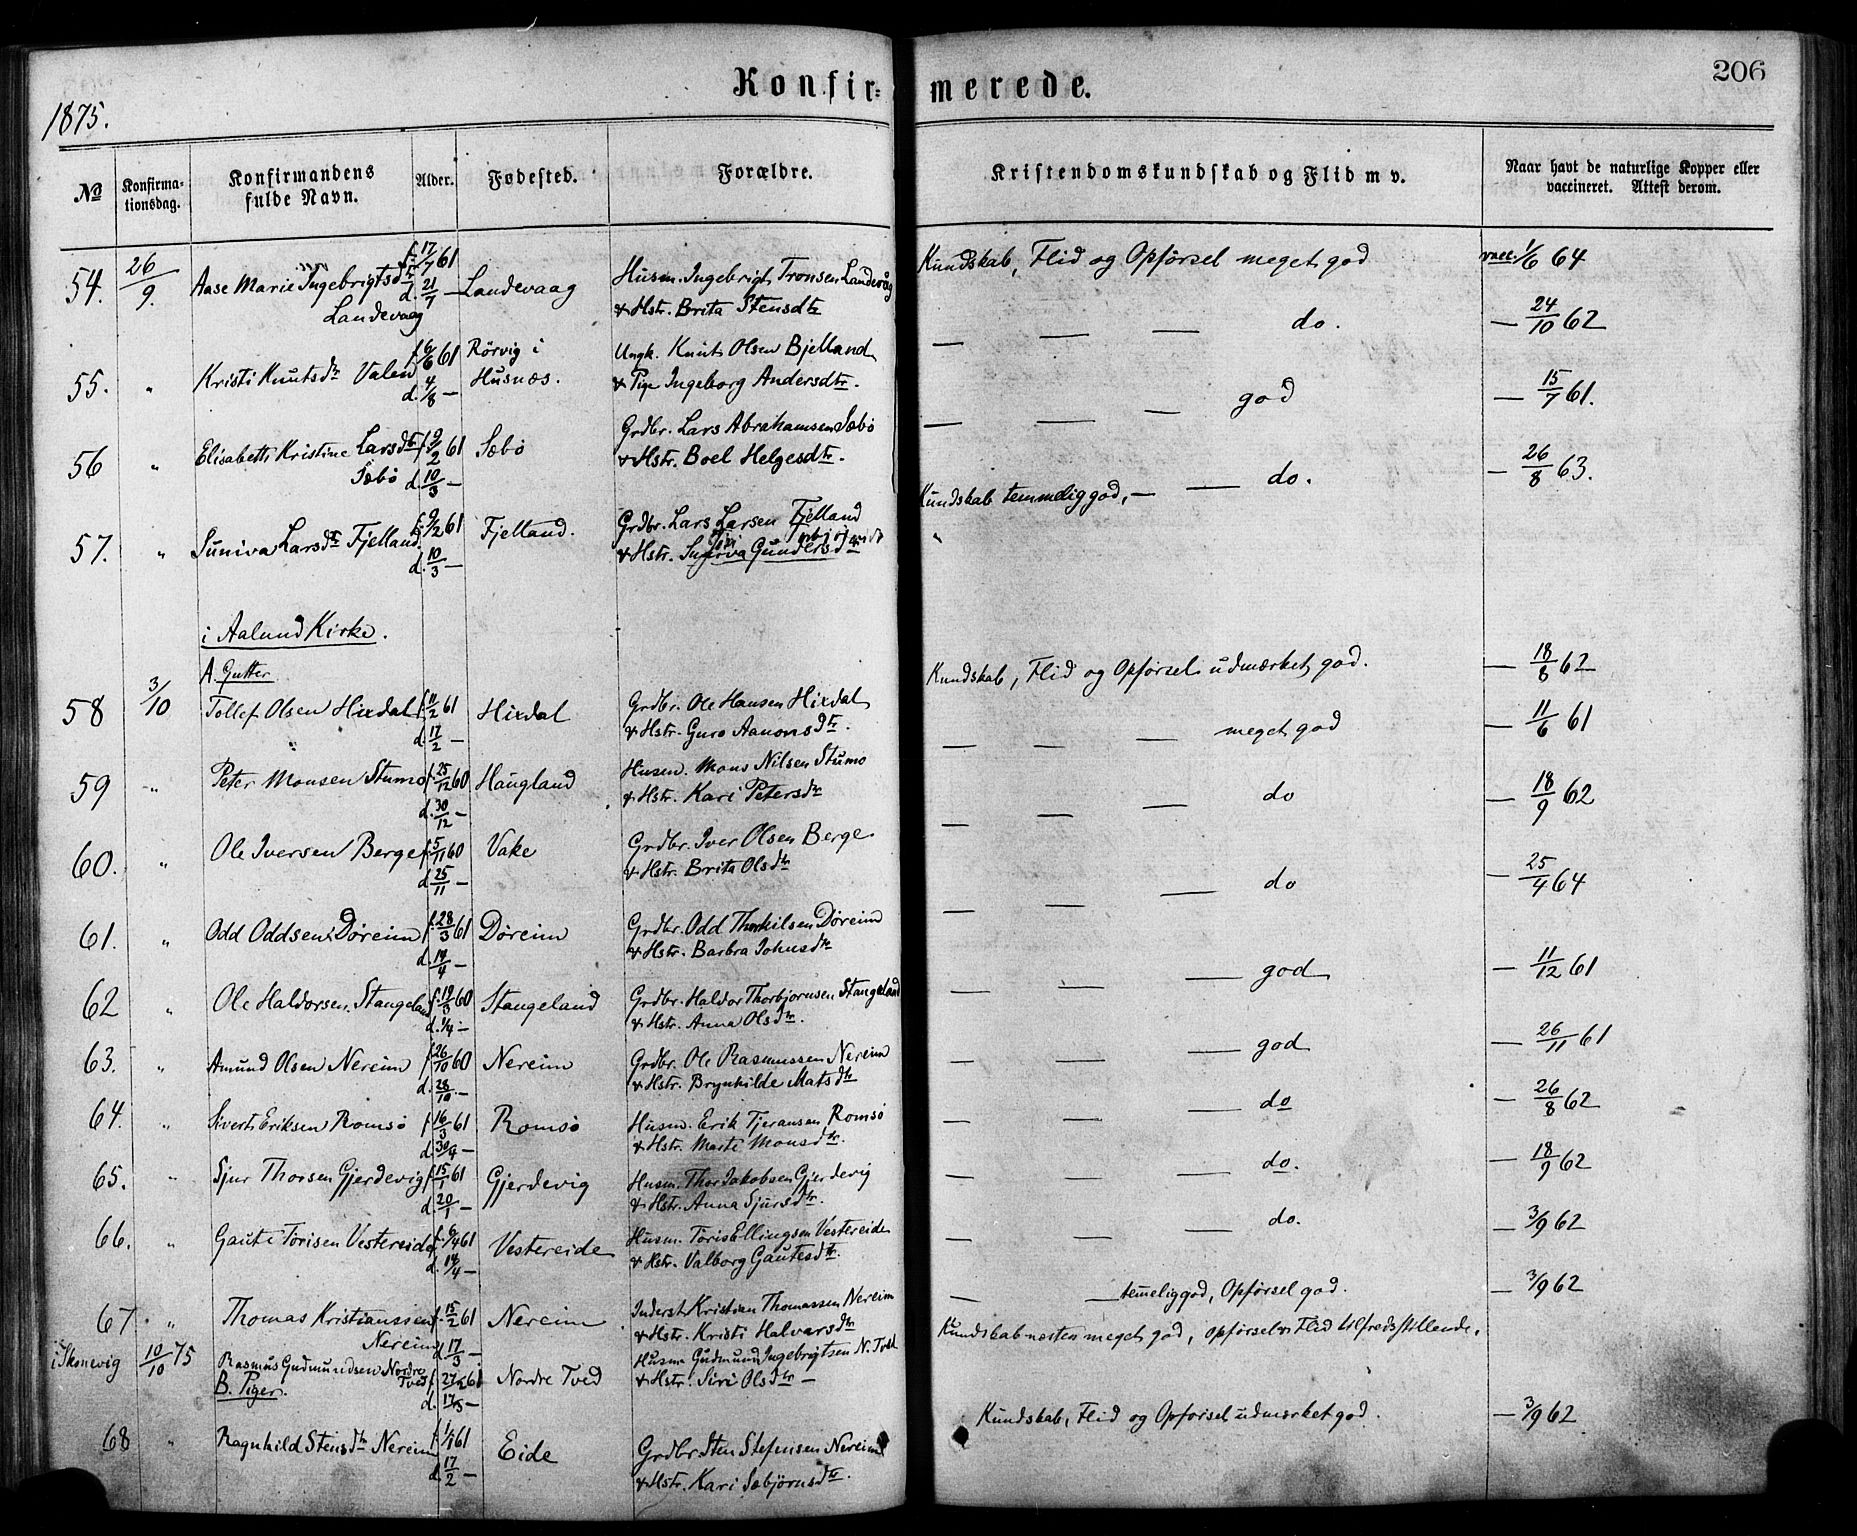 Konfir= merede.
206
1875.
No
Konfirma-
tionsdag.
Konfirmandens
fulde Navn.
Alder.
Fødested.
Forældre.
Kristendomskundskab og Flid m v.
Naar havt de naturlige Kopper eller
vaccineret. Attest derom.
54. 26/9. Aase Marie Ingebrigtsdtr f. 17/7 61 Landevaag Husm. Ingebrigt Tronsen Landevåg Kundskab, Flid og Opførsel meget god vacc. 1/6 64
Landevaag d. 21/7 — & Hstr. Brita Stensdtr
55. " Kristi Knutsdtr Valen f. 6/6 61 Rørvig i Ungk. Knut Olsen Bjelland — — — do. — 24/10 62
d. 4/8 — Husnæs. & Pige Ingeborg Andersdtr.
56 " Elisabeth Kristine Larsdtr f. 9/2 61 Sæbø Grdbr. Lars Abrahamsen Sæbø — — — god — 15/7 61.
Sæbø d. 10/3 — & Hstr. Boel Helgesdtr.
57. " Suniva Larsdtr Fjelland f. 9/2 61 Fjelland. Grdbr. Lars Larsen Fjelland Kundskab temmelig god, — — do. — 26/8 63.
d. 10/3 — & Hstr. Gundersdtr
i Aalund Kirke.
A. Gutter
58 3/10 Tollef Olsen Hixdal f. 11/2 61 Hixdal Grdbr. Ole Hansen Hixdal Kundskab, Flid og Opførsel udmærket god. — 18/8 62
d. 17/2 — & Hstr. Guro Aamonsdtr.
59 " Peter Monsen Stumo f. 25/12 60 Haugland Husm. Mons Nilsen Stumo — — — meget god — 11/6 61
d. 30/12 — & Hstr. Kari Petersdtr
60. " Ole Iversen Berge f. 5/11 60 Vake Grdbr. Iver Olsen Berge — — — do — 18/9 62
d. 25/11 — & Hstr. Brita Olsdtr
61. " Odd Oddsen Døreim f. 28/3 61 Døreim Grdbr. Odd Thorkilsen Døreim — — — do — 25/4 64
d. 14/4 — & Hstr. Barbra Johnsdtr
62 " Ole Haldorsen Stangeland f. 19/3 60 Stangeland Grdbr. Haldor Thorbjørnsen Stangeland — — — god — 11/12 61
d. 1/4 — & Hstr. Anna Olsdtr.
63. " Amund Olsen Nereim f. 26/10 60 Nereim Grdbr. Ole Rasmussen Nereim — — — god — 26/11 61
d. 28/10 — & Hstr. Brynhilde Matsdtr
64. " Sivert Eriksen Romsø f. 16/3 61 Romsø Husm. Erik Tjeransen Romsø — — — do — 26/8 62
d. 30/4 — & Hstr. Marte Monsdtr.
65. " Sjur Thorsen Gjerdevig f. 15/1 61 Gjerdevig Husm. Thor Jakobsen Gjerdevig — — do. — 18/9 62
d. 20/1 — & Hstr. Anna Sjursdtr.
66. " Gaute Tørisen Vestereide f. 6/4 61 Vestereide Husm. Tøris Ellingsen Vestereide — — — do. — 3/9 62
d. 14/4 — & Hstr. Valborg Gautesdtr.
67 " Thomas Kristianssen f. 15/2 61 Nereim Inderst Kristian Thomassen Nereim — — temmelig god, Opførsel god. — 3/9 62
Nereim d. 17/3 — & Hstr. Kristi Halvarsdtr
i Skonevig 10/10 75 Rasmus Gudmundsen Nordre Tved f. 27/2 61 Nordre Tved Husm Gudmund Ingebrigtsen N. Tved Kundskab næsten meget god, Opførsel & Flid tilfredsstillende.
B. Piger. d. 17/5 — & Hstr. Siri Olsdtr —
68 " Ragnhild Stensdtr Nereim f. 1/1 61 Eide Grdbr Sten Stefensen Nereim Kundskab, Flid og Opførsel udmærket god. — 3/9 62
d. 17/2 — & Hstr. Kari Sæbjørnsdtr.